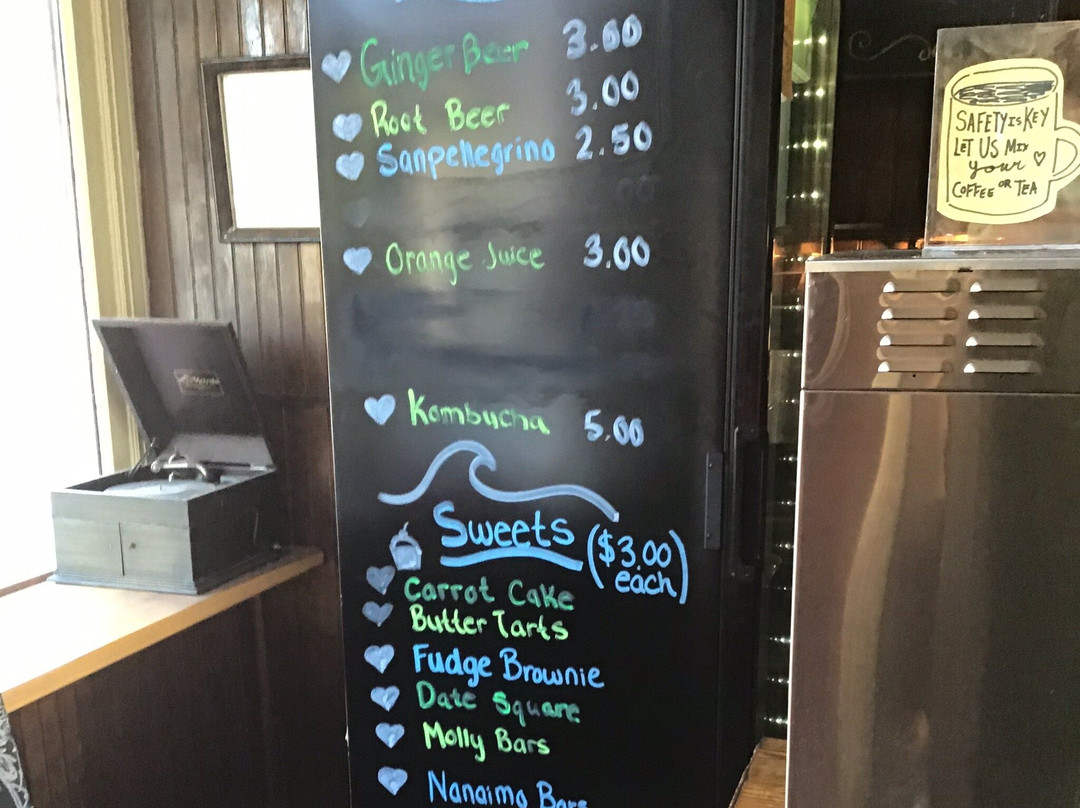 Ginger Beer 3.00
Root Beer 3.00
Sanpellegrino 2.50
Orange Juice 3.00
Kombucha 5.00
Sweets ($3.00 each)
Carrot Cake
Butter Tarts
Fudge Brownie
Date Square
Molly Bars
Nanaimo Bars
SAFETY IS KEY
LET US MIX
your
COFFEE OR TEA